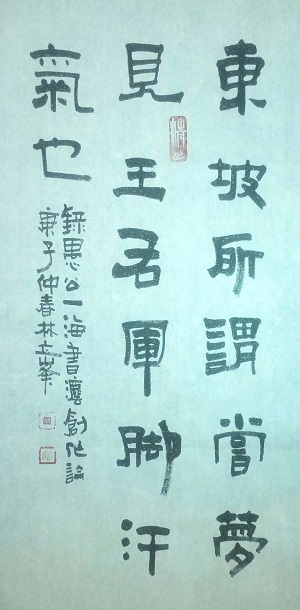 東坡所謂嘗夢
見王右軍脚汗
氣也
錄愚公一海書灋論
庚子仲春林立峯